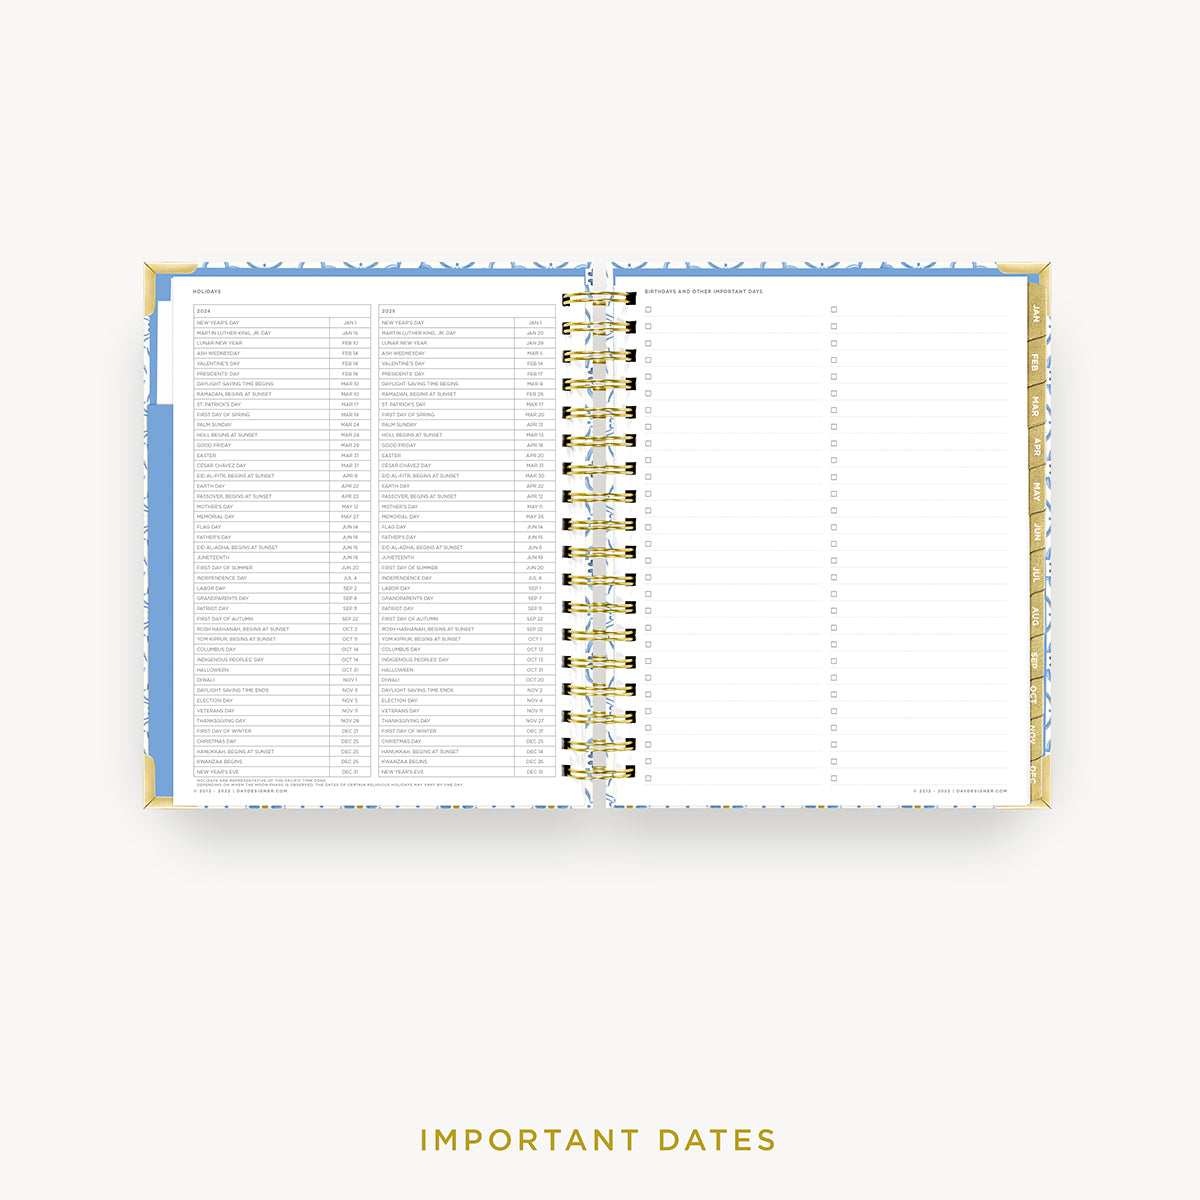 HOLIDAYS
2024
NEW YEAR'S DAY JAN 1
MARTIN LUTHER KING, JR. DAY JAN 15
LUNAR NEW YEAR FEB 10
ASH WEDNESDAY FEB 14
VALENTINE'S DAY FEB 14
PRESIDENTS' DAY FEB 19
DAYLIGHT SAVING TIME BEGINS MAR 10
RAMADAN, BEGINS AT SUNSET MAR 10
ST. PATRICK'S DAY MAR 17
FIRST DAY OF SPRING MAR 19
PALM SUNDAY MAR 24
HOLI, BEGINS AT SUNSET MAR 24
GOOD FRIDAY MAR 29
EASTER MAR 31
CÉSAR CHÁVEZ DAY MAR 31
EID AL-FITR, BEGINS AT SUNSET APR 9
EARTH DAY APR 22
PASSOVER, BEGINS AT SUNSET APR 22
MOTHER'S DAY MAY 12
MEMORIAL DAY MAY 27
FLAG DAY JUN 14
FATHER'S DAY JUN 16
EID AL-ADHA, BEGINS AT SUNSET JUN 16
JUNETEENTH JUN 19
FIRST DAY OF SUMMER JUN 20
INDEPENDENCE DAY JUL 4
LABOR DAY SEP 2
GRANDPARENTS DAY SEP 8
PATRIOT DAY SEP 11
FIRST DAY OF AUTUMN SEP 22
ROSH HASHANAH, BEGINS AT SUNSET OCT 2
YOM KIPPUR, BEGINS AT SUNSET OCT 11
COLUMBUS DAY OCT 14
INDIGENOUS PEOPLES' DAY OCT 14
HALLOWEEN OCT 31
DIWALI NOV 1
DAYLIGHT SAVING TIME ENDS NOV 3
ELECTION DAY NOV 5
VETERANS DAY NOV 11
THANKSGIVING DAY NOV 28
FIRST DAY OF WINTER DEC 21
CHRISTMAS DAY DEC 25
HANUKKAH, BEGINS AT SUNSET DEC 25
KWANZAA BEGINS DEC 26
NEW YEAR'S EVE DEC 31
2025
NEW YEAR'S DAY JAN 1
MARTIN LUTHER KING, JR. DAY JAN 20
LUNAR NEW YEAR JAN 29
ASH WEDNESDAY MAR 5
VALENTINE'S DAY FEB 14
PRESIDENTS' DAY FEB 17
DAYLIGHT SAVING TIME BEGINS MAR 9
RAMADAN, BEGINS AT SUNSET FEB 28
ST. PATRICK'S DAY MAR 17
FIRST DAY OF SPRING MAR 20
PALM SUNDAY APR 13
HOLI, BEGINS AT SUNSET MAR 13
GOOD FRIDAY APR 18
EASTER APR 20
CÉSAR CHÁVEZ DAY MAR 31
EID AL-FITR, BEGINS AT SUNSET MAR 30
EARTH DAY APR 22
PASSOVER, BEGINS AT SUNSET APR 12
MOTHER'S DAY MAY 11
MEMORIAL DAY MAY 26
FLAG DAY JUN 14
FATHER'S DAY JUN 15
EID AL-ADHA, BEGINS AT SUNSET JUN 6
JUNETEENTH JUN 19
FIRST DAY OF SUMMER JUN 20
INDEPENDENCE DAY JUL 4
LABOR DAY SEP 1
GRANDPARENTS DAY SEP 7
PATRIOT DAY SEP 11
FIRST DAY OF AUTUMN SEP 22
ROSH HASHANAH, BEGINS AT SUNSET SEP 22
YOM KIPPUR, BEGINS AT SUNSET OCT 1
COLUMBUS DAY OCT 13
INDIGENOUS PEOPLES' DAY OCT 13
HALLOWEEN OCT 31
DIWALI OCT 20
DAYLIGHT SAVING TIME ENDS NOV 2
ELECTION DAY NOV 4
VETERANS DAY NOV 11
THANKSGIVING DAY NOV 27
FIRST DAY OF WINTER DEC 21
CHRISTMAS DAY DEC 25
HANUKKAH, BEGINS AT SUNSET DEC 14
KWANZAA BEGINS DEC 26
NEW YEAR'S EVE DEC 31
HOLIDAYS ARE REPRESENTATIVE OF THE PACIFIC TIME ZONE.
DEPENDING ON WHEN THE MOON PHASE IS OBSERVED, THE DATES OF CERTAIN RELIGIOUS HOLIDAYS MAY VARY BY ONE DAY.
© 2012 - 2022 | DAYDESIGNER.COM
BIRTHDAYS AND OTHER IMPORTANT DAYS
© 2012 - 2022 | DAYDESIGNER.COM
JAN
FEB
MAR
APR
MAY
JUN
JUL
AUG
SEP
OCT
NOV
DEC
IMPORTANT DATES